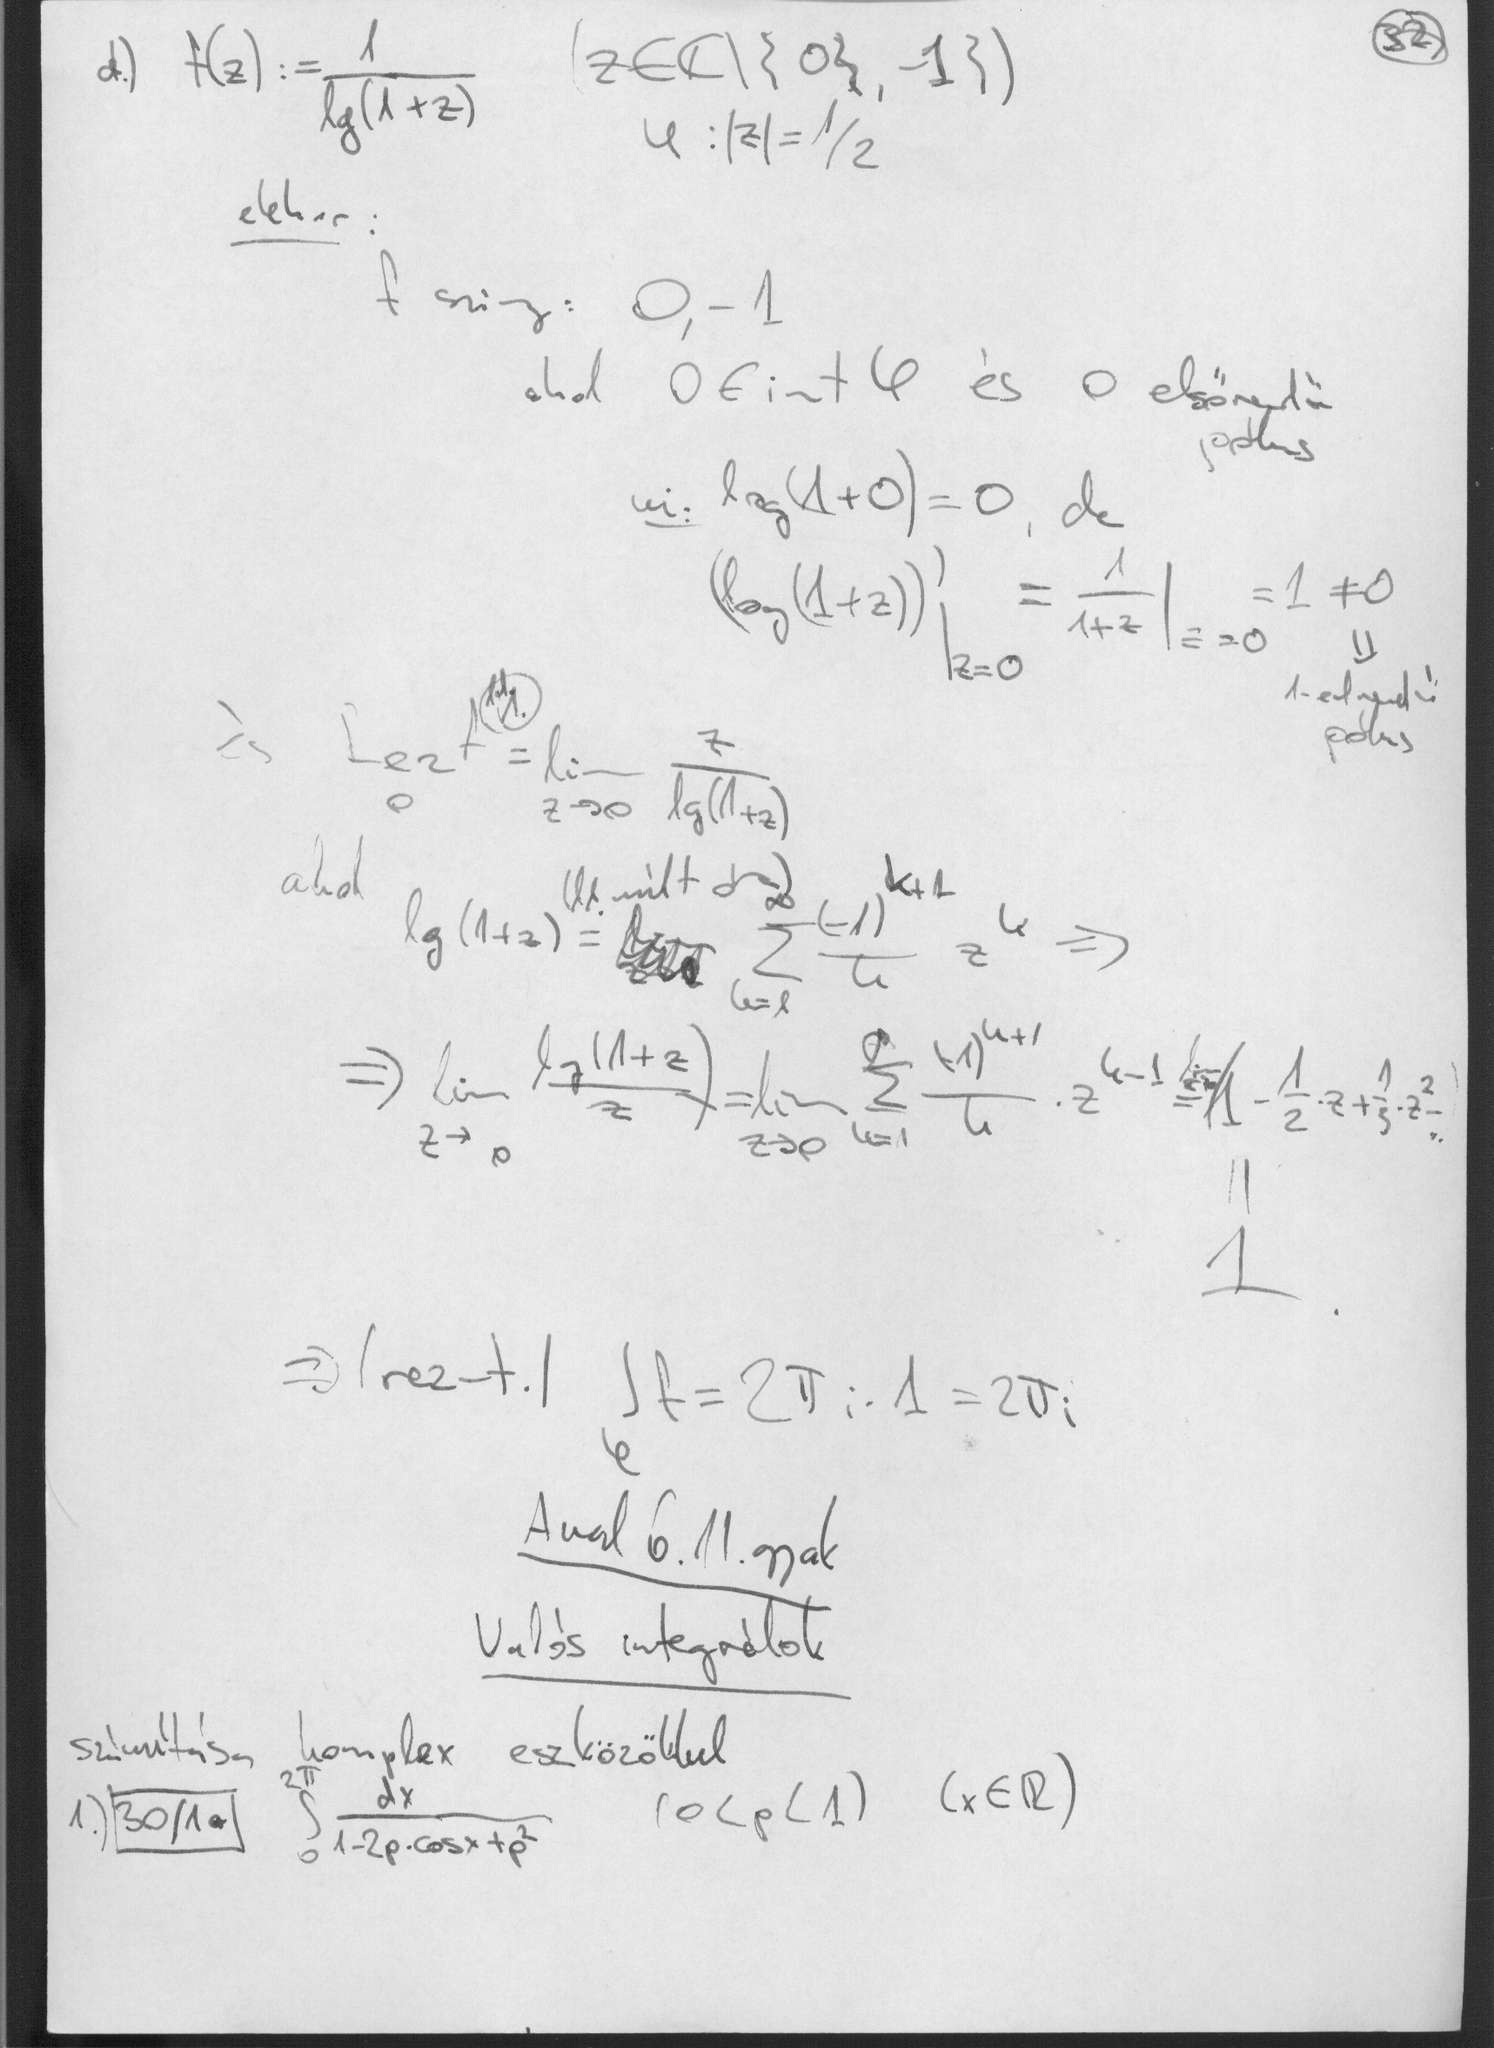 32
d.) f(z) := 1/lg(1+z) (z∈ℂ\{0}, -1})
φ : |z| = 1/2
ekkor:
f szing: 0, -1
ahol 0 ∈ int φ és 0 elsőrendű
pólus
ui: log(1+0) = 0, de
(log(1+z))'|z=0 = 1/(1+z)|z=0 = 1 ≠ 0
⇓
1-ső rendű
pólus
és Rez f = lim z/lg(1+z)
0 z→0
ahol lg(1+z) = (ld. múlt óra) ∞∑k=1 (-1)^(k+1)/k z^k ⇒
⇒ lim z→0 lg(1+z)/z = lim z→0 ∑k=1 (-1)^(k+1)/k · z^(k-1) = lim 1 - 1/2·z + 1/3·z² - ...
=
1.
⇒ (rez-t.) ∫φ f = 2πi·1 = 2πi
Anal 6. 11. gyak
Valós integrálok
számítása komplex eszközökkel
1.) 30/1a ∫0^2π dx/(1-2p·cosx+p²) (0<p<1) (x∈ℝ)